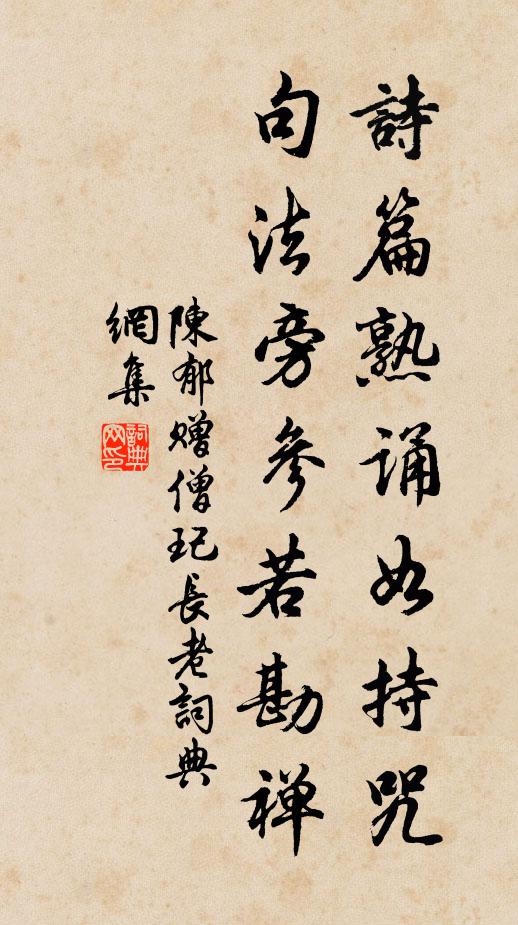 詩篇熟诵如持咒
句法旁参若勘禅
陳郁赠僧玘長老詞典
網集
詞典网印